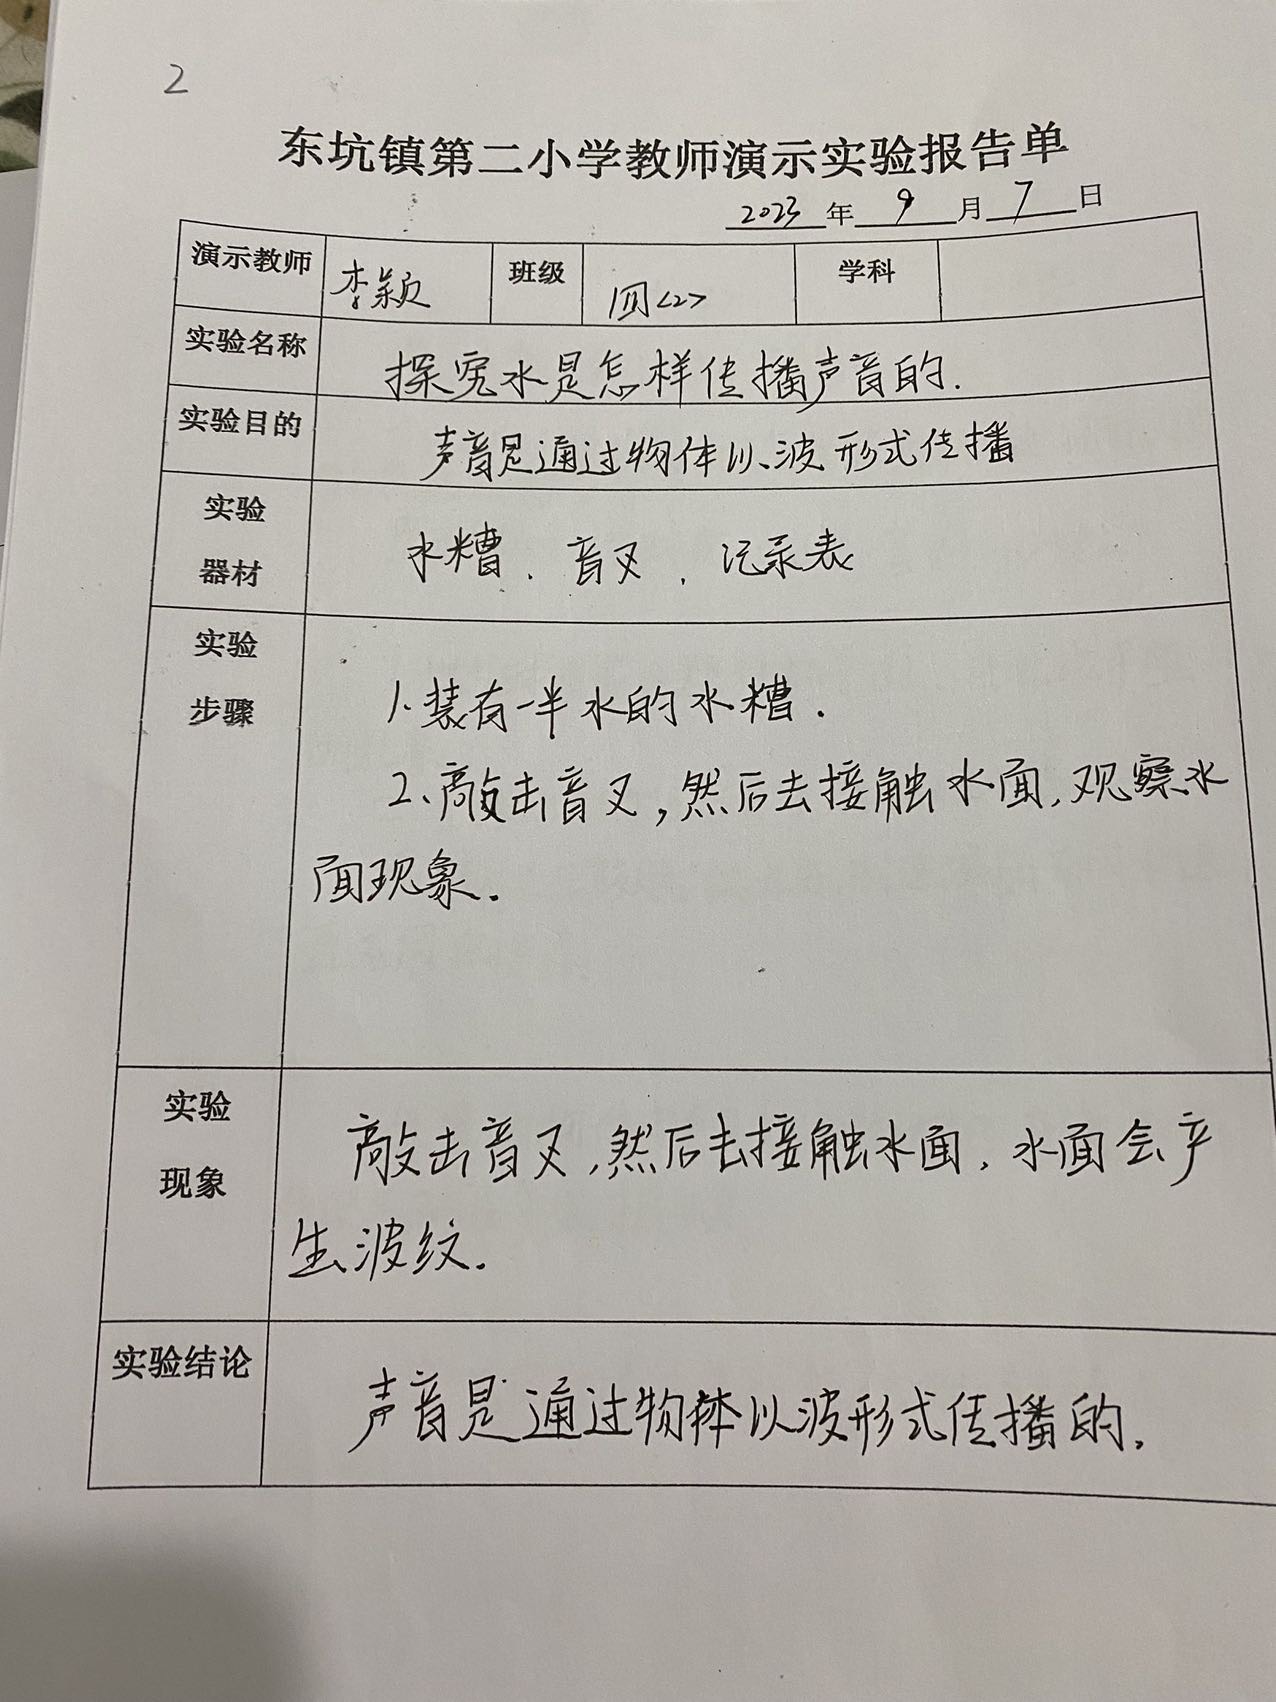 2
东坑镇第二小学教师演示实验报告单
2023年9月7日
演示教师 李颖 班级 四<2> 学科
实验名称 探究水是怎样传播声音的.
实验目的 声音是通过物体以波形式传播
实验
器材
水糟、音叉、记录表
实验
步骤
1.装有一半水的水糟.
2、敲击音叉,然后去接触水面,观察水
面现象.
实验
现象
敲击音叉,然后去接触水面,水面会产
生波纹.
实验结论 声音是通过物体以波形式传播的.